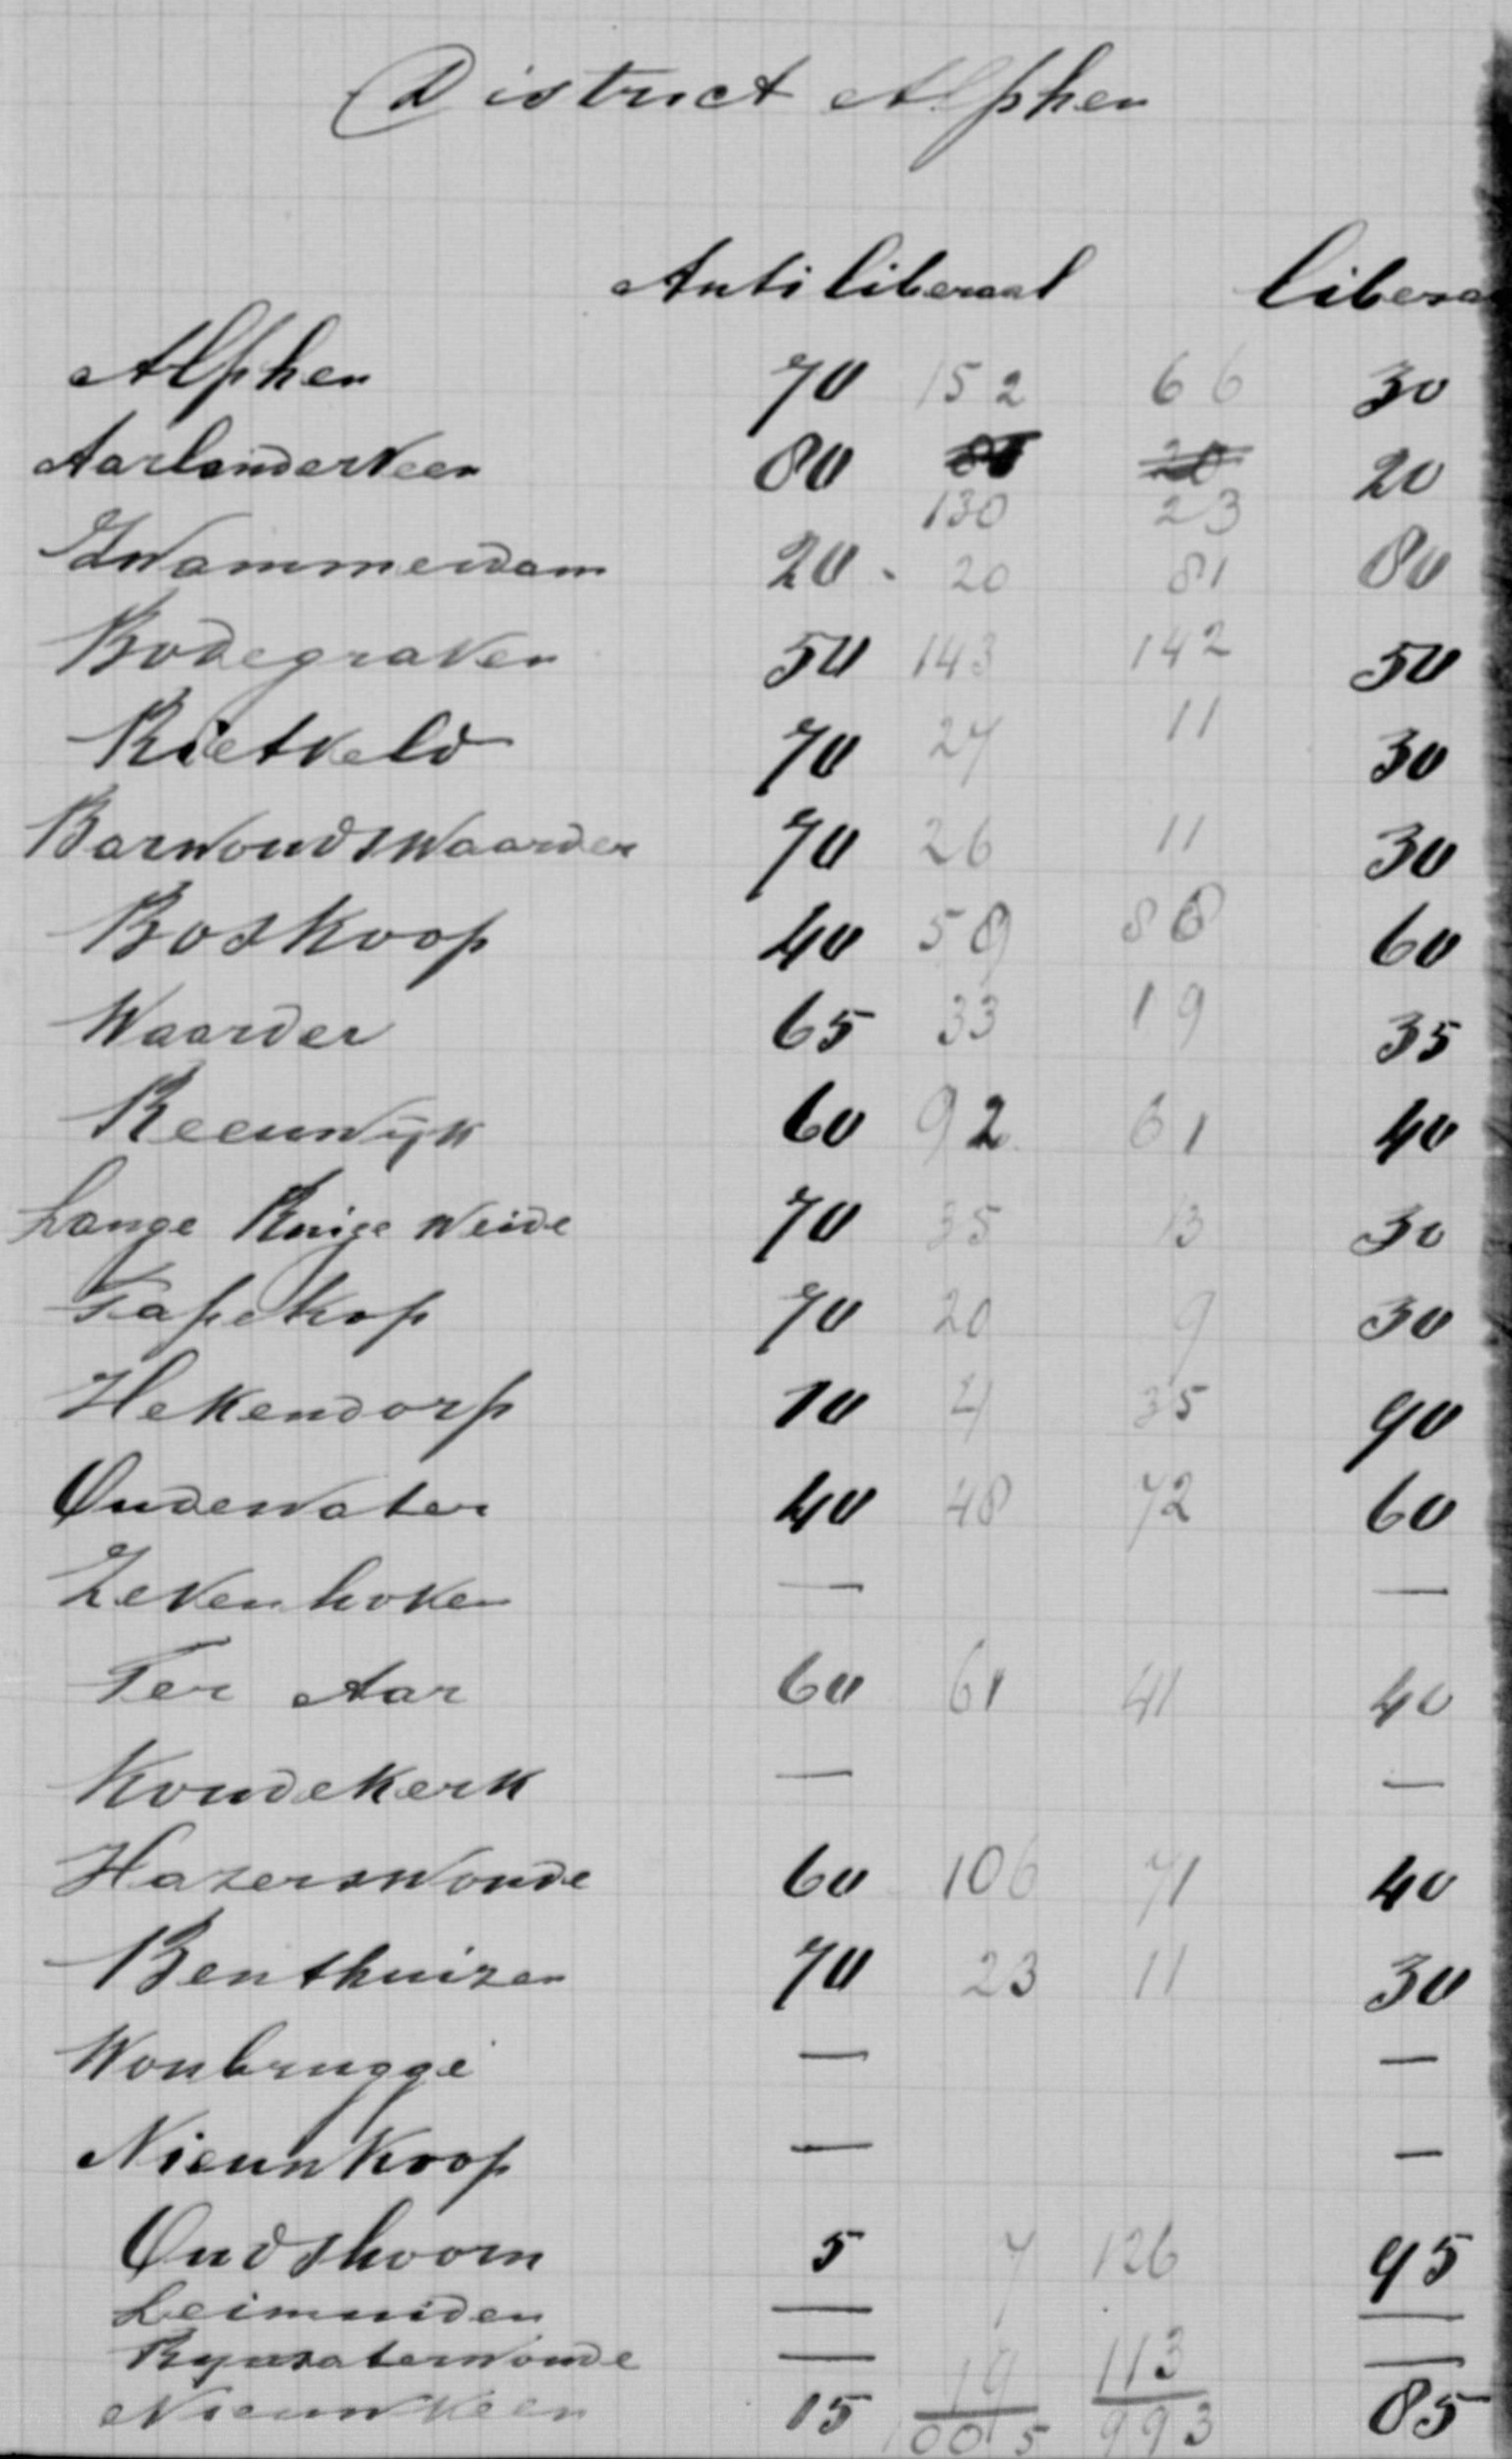 District Alphen
Antiliberaal libera
Alphen 70 152 66 30
Aarlanderveen 80 20
130 23
Zwammerdam 20 20 81 80
Bodegraven 50 143 142 50
Rietveld 70 27 11 30
Barwoudswaarder 70 26 11 30
Boskoop 40 59 88 60
Waarder 65 33 19 35
Reeuwijk 60 92 61 40
Lange Ruige Weide 70 35 13 30
Papekop 70 20 9 30
Hekendorp 10 4 35 90
Oudewater 40 48 72 60
Zevenhoven — —
Ter Aar 60 61 41 40
Koudekerk — —
Hazerswoude 60 106 71 40
Benthuizen 70 23 11 30
Woubrugge — —
Nieuwkoop — —
Oudshoorn 5 7 126 95
Leimuiden — —
Rynsaterwoude — —
Nieuwveen 15 19 113 85
1005 993